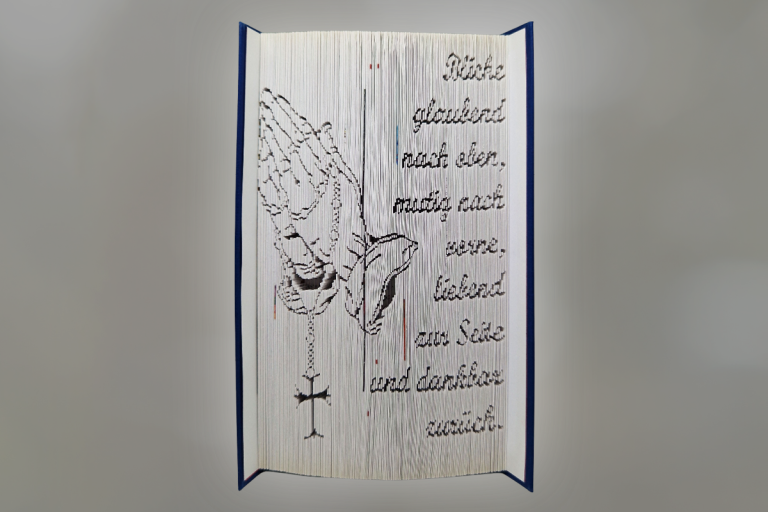 Blicke
glaubend
nach oben,
mutig nach
vorne,
liebend
zur Seite
und dankbar
zurück.